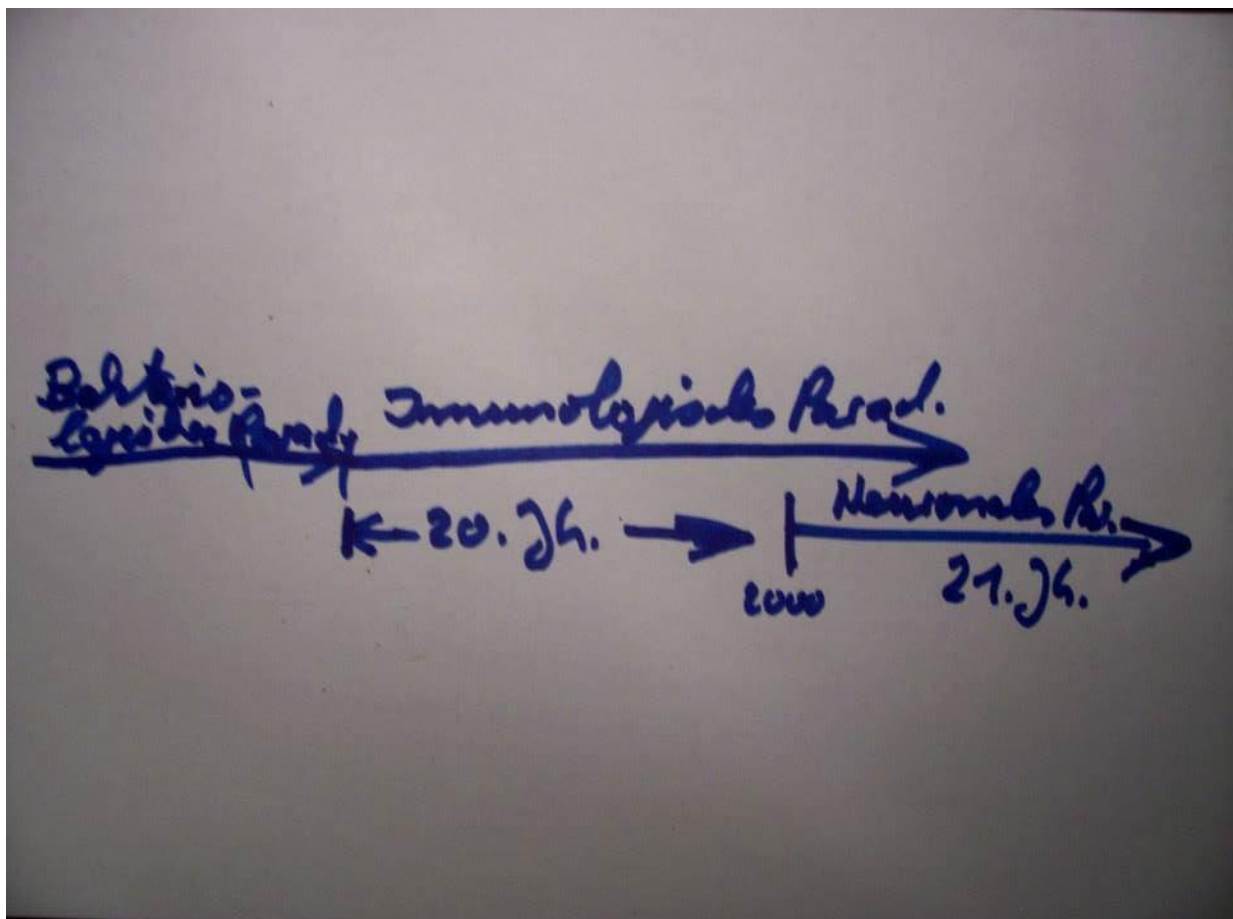 Bakterio-
logisches Parad.
Immunologisches Parad.
20. Jh.
Neuronales Par.
2000
21. Jh.